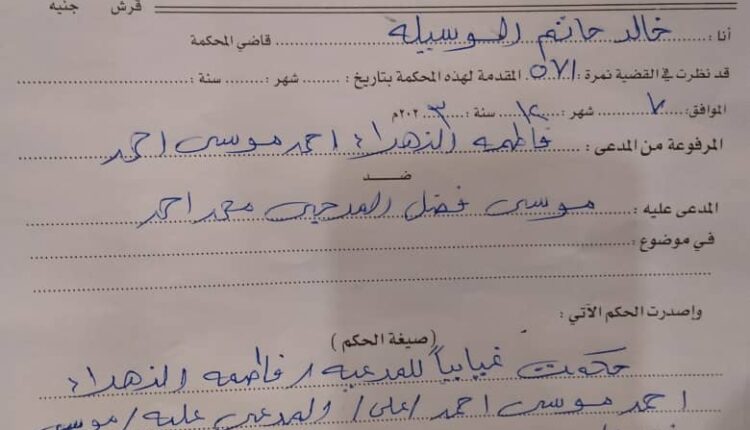 قرش جنيه
أنا : خالد حاتم الوسيله قاضي المحكمة
قد نظرت في القضية نمرة : ٥٧١ المقدمة لهذه المحكمة بتاريخ : شهر : سنة :
الموافق : ٧ شهر : ١٢ سنة : ٢٠٢٣م
المرفوعة من المدعى : فاطمه الزهراء احمد موسى احمد
ضد
المدعى عليه : موسى فضل المرجي محمد احمد
في موضوع :
وإصدرت الحكم الآتي :
(صيغة الحكم)
حكمت غيابياً للمدعيه / فاطمه الزهراء
احمد موسى احمد /على/ المدعى عليه / موسى